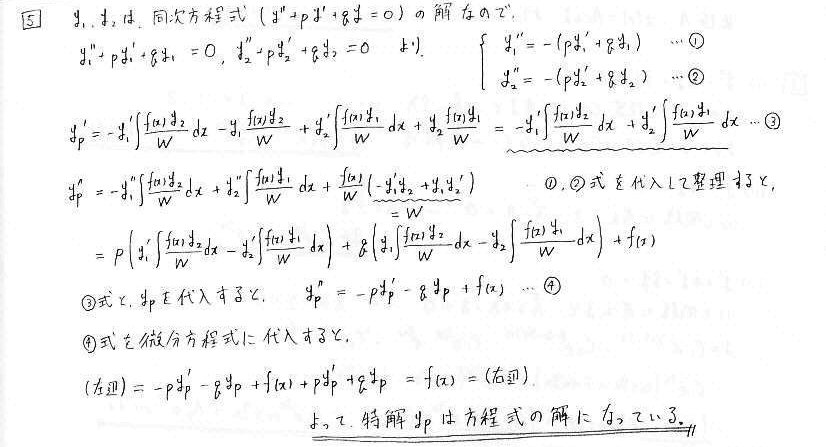 5 y₁, y₂ は、同次方程式 (y''+py'+qy=0) の解なので、
y₁''+py₁'+qy₁=0, y₂''+py₂'+qy₂=0 より、 { y₁''=-(py₁'+qy₁) …① y₂''=-(py₂'+qy₂) …②
yp' = -y₁'∫f(x)y₂/W dx - y₁ f(x)y₂/W + y₂'∫f(x)y₁/W dx + y₂ f(x)y₁/W = -y₁'∫f(x)y₂/W dx + y₂'∫f(x)y₁/W dx …③
yp'' = -y₁''∫f(x)y₂/W dx + y₂''∫f(x)y₁/W dx + f(x)/W (-y₁'y₂+y₁y₂') ①,②式を代入して整理すると、
=W
= p(y₁'∫f(x)y₂/W dx - y₂'∫f(x)y₁/W dx) + q(y₁∫f(x)y₂/W dx - y₂∫f(x)y₁/W dx) + f(x)
③式と、ypを代入すると、 yp'' = -pyp' - qyp + f(x) …④
④式を微分方程式に代入すると、
(左辺) = -pyp' - qyp + f(x) + pyp' + qyp = f(x) = (右辺).
よって、特解 yp は方程式の解になっている。